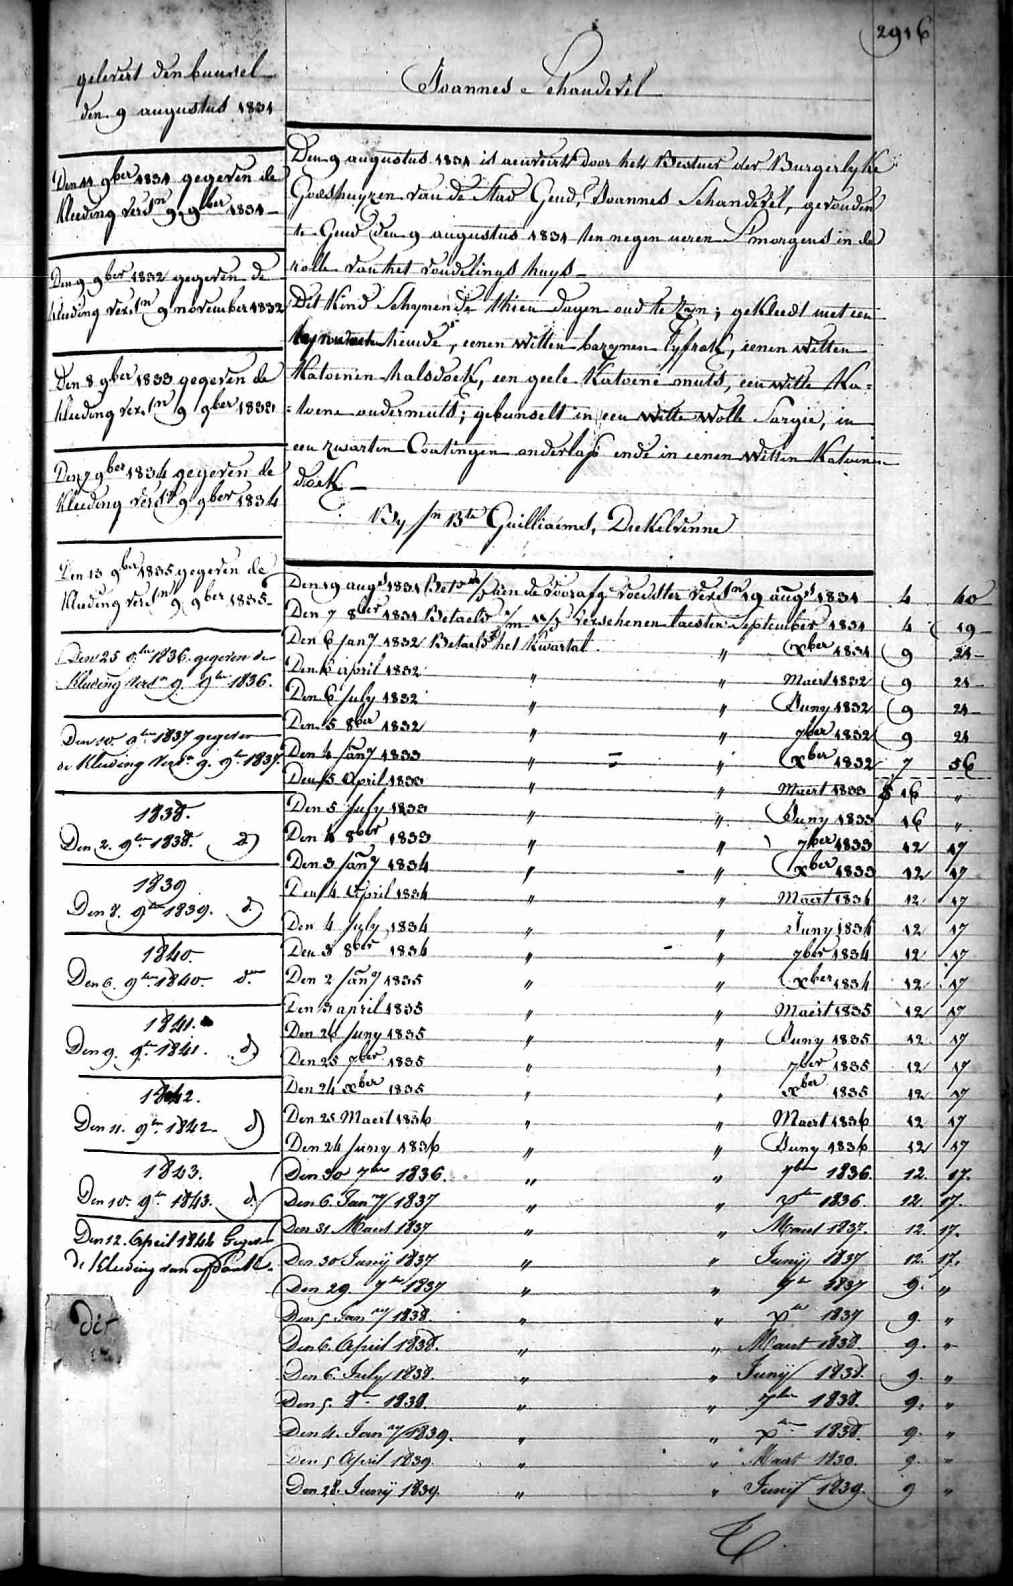 2916
gelevert den bunsel
den 9 augustus 1831
Joannes Schanderel
Den 9 augustus 1831 is aenveirt door het Bestier der Burgerlyke
Godshuyzen van de Stad Gend, Joannes Schanderel, gevonden
te Gend den 9 augustus 1831 ten negen ueren S'morgens in de
rolle van het vondelings huys
Dit Kind Schynende thien dagen oud te Zyn; gekleedt met een
hemde, eenen witten bazynen lyfrok, eenen witten
Katoenen halsdoek, een geele Katoene muts, een witte Ka=
=toene ondermuts; gebunselt in een witte wolle Sargie, in
een zwarten Coatingen onderlass ende in eenen witten Katoenen
doek
By Jn Bte Guilliaems, Deckelvenne
Den 11 9ber 1831 gegeven de
kleeding versn 9 9ber 1831
Den 9 9ber 1832 gegeven de
kleeding versn 9 november 1832
Den 8 9ber 1833 gegeven de
kleeding versn 9 9ber 1833
Den 7 9ber 1834 gegeven de
kleeding versn 9 9ber 1834
Den 13 9ber 1835 gegeven de
kleeding versn 9 9ber 1835
Den 25 1836 gegeven de
kleeding versn 9. 9ber 1836.
Den 10. 9ber 1837 gegeven
de kleeding versn 9. 9ber 1837.
1838.
Den 2. 9ber 1838. d)
1839
Den 8. 9ber 1839. d)
1840.
Den 6. 9ber 1840. do
1841.
Den 9. 9ber 1841. d)
1842.
Den 11. 9ber 1842 d)
1843.
Den 10. 9ber 1843. d)
Den 12. April 1844
de kleeding van
Den 19 augt 1831 Bet. de voorafge voedster versn 19 augt 1831 4 40
Den 7 8ber 1831 Betaeld Verschenen laesten September 1831 4 19
Den 6 Jany 1832 Betaeld het Kwartal " xber 1831 9 21
Den 6 april 1832 " " Maert 1832 9 21
Den 6 July 1832 " " Juny 1832 9 21
Den 5 8ber 1832 " " 7ber 1832 9 21
Den 4 Jany 1833 " " xber 1832 7 56
Den 5 April 1833 " " Maert 1833 16 "
Den 5 July 1833 " " Juny 1833 16 "
Den 4 8ber 1833 " " 7ber 1833 12 17
Den 3 Jany 1834 " " xber 1833 12 17
Den 4 April 1834 " " Maert 1834 12 17
Den 4 July 1834 " " Juny 1834 12 17
Den 3 8ber 1834 " " 7ber 1834 12 17
Den 2 Jany 1835 " " xber 1834 12 17
Den 3 april 1835 " " Maert 1835 12 17
Den 26 Juny 1835 " " Juny 1835 12 17
Den 25 7ber 1835 " " 7ber 1835 12 17
Den 24 xber 1835 " " xber 1835 12 17
Den 25 Maert 1836 " " Maert 1836 12 17
Den 24 Juny 1836 " " Juny 1836 12 17
Den 30 7ber 1836. " " 7ber 1836. 12. 17.
Den 6. Jany 1837 " " xber 1836. 12. 17.
Den 31 Maert 1837 " " Maert 1837. 12. 17.
Den 30 Junij 1837 " " Junij 1837 12. 17.
Den 29. 7ber 1837 " " 7ber 1837 9. "
Den 5 Jany 1838. " " xber 1837 9. "
Den 6. April 1838. " " Maert 1838. 9. "
Den 6. July 1838. " " Junij 1838. 9. "
Den 5. 8ber 1838. " " 7ber 1838. 9. "
Den 4. Jany 1839. " " xber 1838. 9. "
Den 5 April 1839. " " Maert 1839. 9. "
Den 28. Junij 1839. " " Junij 1839. 9 "